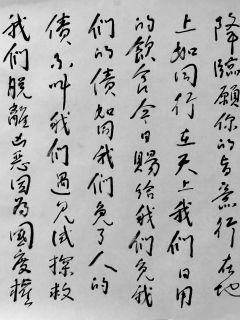 降臨願你的旨意行在地
上如同行在天上我們日用
的飲食今日賜給我們免我
們的債如同我們免了人的
債不叫我們遇見試探救
我們脫離凶惡因為國度權